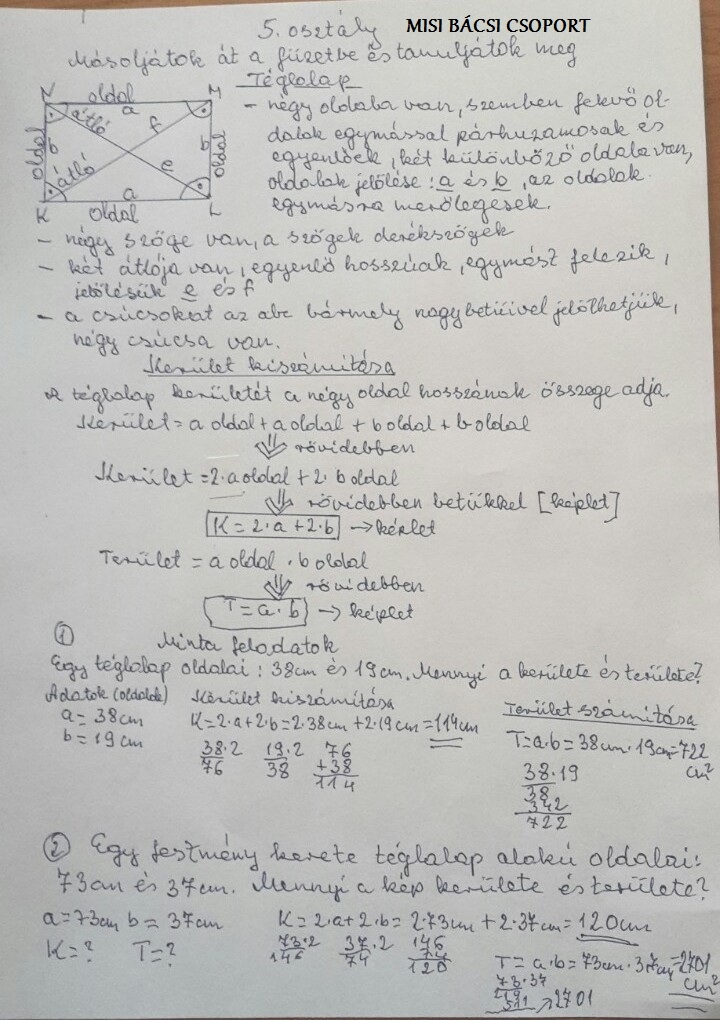 5. osztály MISI BÁCSI CSOPORT
Másoljátok át a füzetbe és tanuljátok meg
Téglalap
N oldal M
a
átló f
oldal b b oldal
átló e
a
K oldal L
- négy oldala van, szemben fekvő ol-
dalak egymással párhuzamosak és
egyenlőek, két különböző oldala van,
oldalak jelölése: a és b, az oldalak
egymásra merőlegesek.
- négy szöge van, a szögek derékszögek
- két átlója van, egyenlő hosszúak, egymást felezik,
jelölésük e és f
- a csúcsokat az abc bármely nagybetűivel jelölhetjük,
négy csúcsa van.
Kerület kiszámítása
A téglalap kerületét a négy oldal hosszának összege adja.
Kerület = a oldal + a oldal + b oldal + b oldal
⇓ rövidebben
Kerület = 2·a oldal + 2·b oldal
⇓ rövidebben betűkkel [képlet]
K = 2·a + 2·b → képlet
Terület = a oldal · b oldal
⇓ rövidebben
T = a·b → képlet
① Minta feladatok
Egy téglalap oldalai: 38cm és 19cm. Mennyi a kerülete és területe?
Adatok (oldalak) Kerület kiszámítása Terület számítása
a = 38cm K = 2·a + 2·b = 2·38cm + 2·19cm = 114cm
b = 19cm T = a·b = 38cm·19cm = 722 cm²
38·2 19·2 76 38·19
76 38 +38 38
114 342
722
② Egy festmény kerete téglalap alakú oldalai:
73cm és 37cm. Mennyi a kép kerülete és területe?
a = 73cm b = 37cm K = 2·a + 2·b = 2·73cm + 2·37cm = 120cm
K = ? T = ? 73·2 37·2 146
146 74 74
120
T = a·b = 73cm·37cm = 2701 cm²
73·37
219
511 → 2701